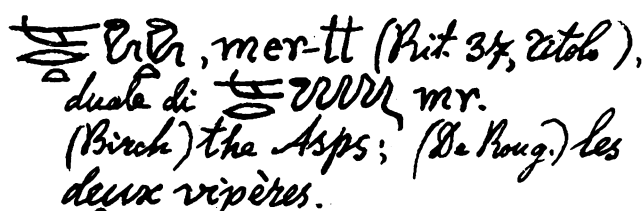 , mer-tt (Rit. 37, titolo),
duale di mr.
(Birch) the Asps; (De Roug.) les
deux vipères.